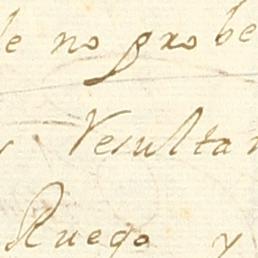 de no probe
Resulta
Ruego y